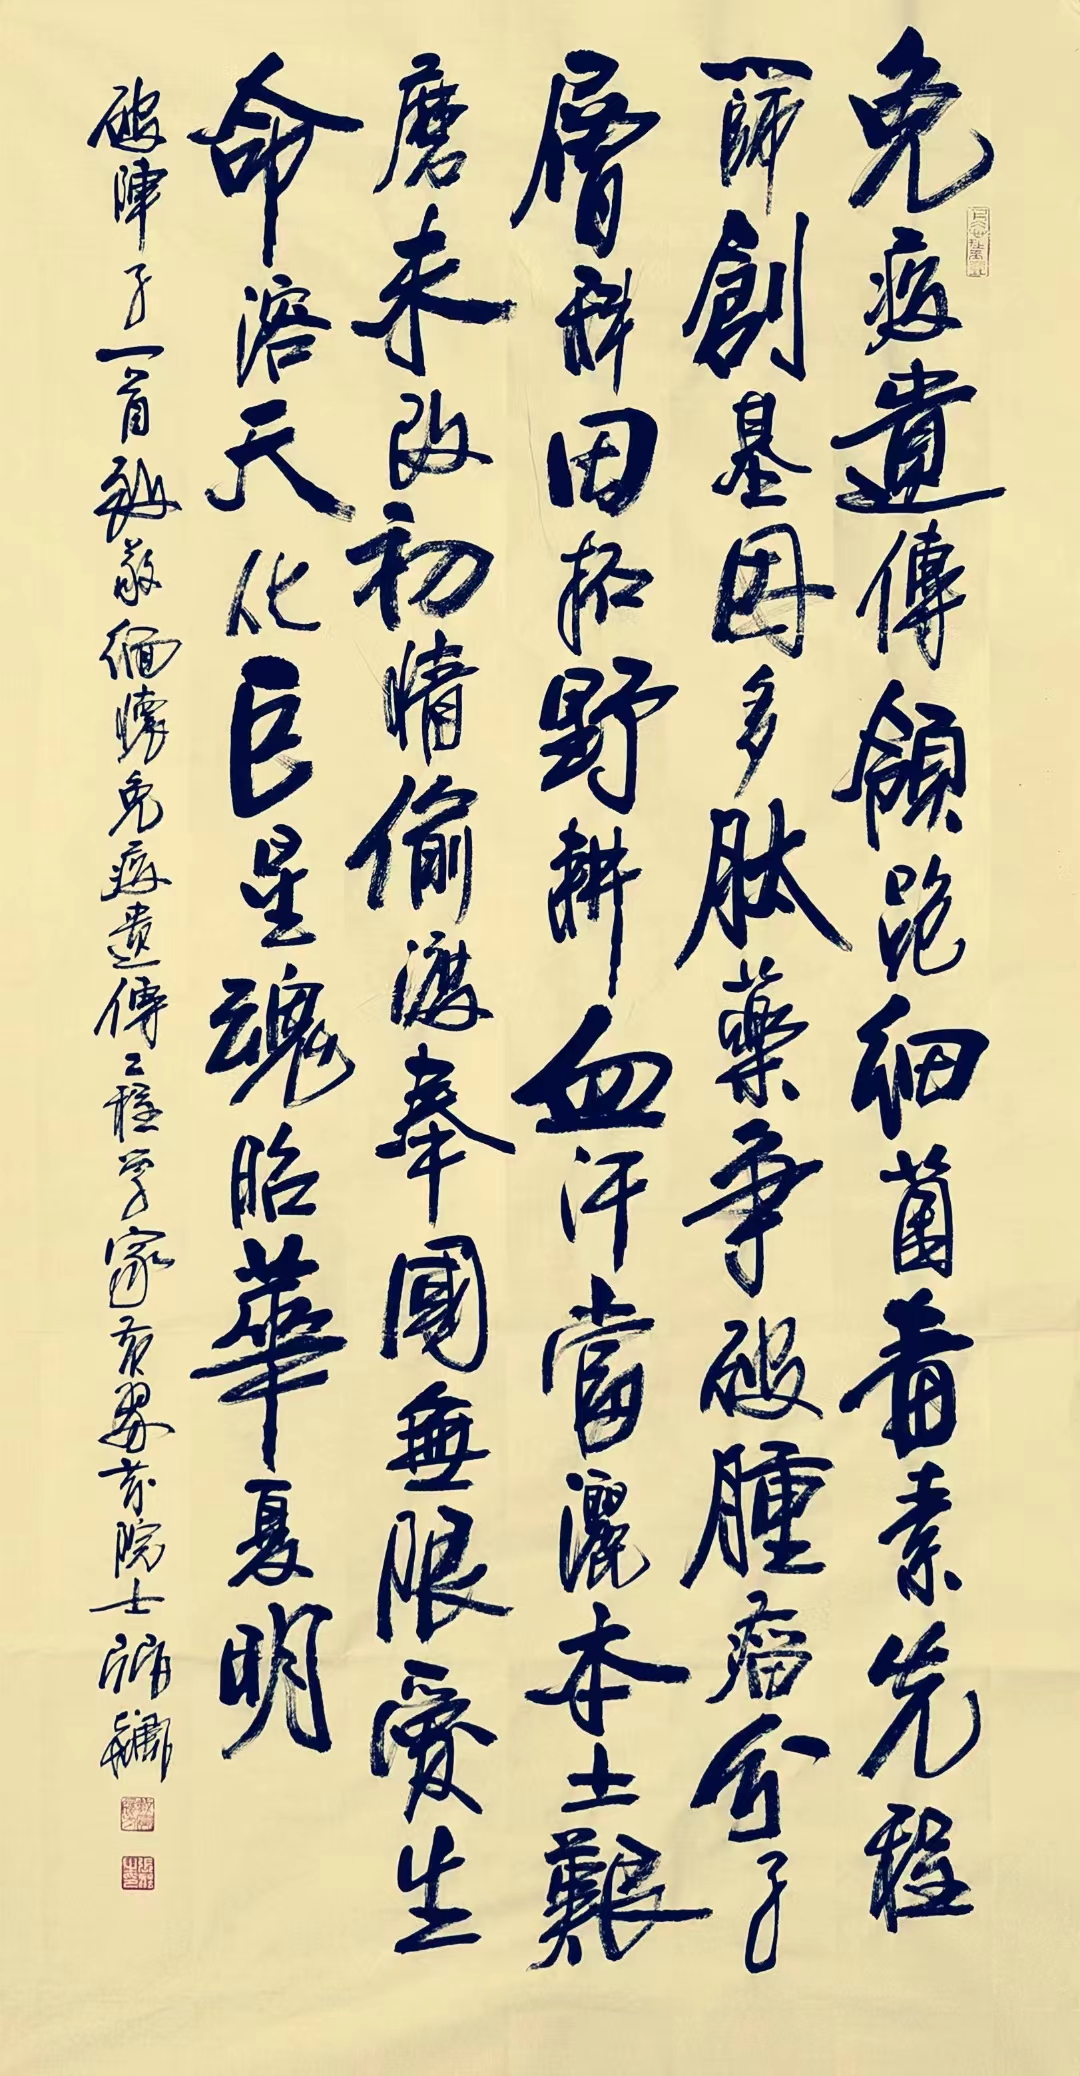 免疫遺傳領跑細菌毒素先程
一師創基因多肽藥争破腫瘤分子
層科因拓野耕血汗當灑本土艱
磨未改初情偷渡奉國無限愛生
命溶天化巨星魂昭華夏明
破陣子一首致敬緬懷免疫遺傳工程學家黃翠芬院士